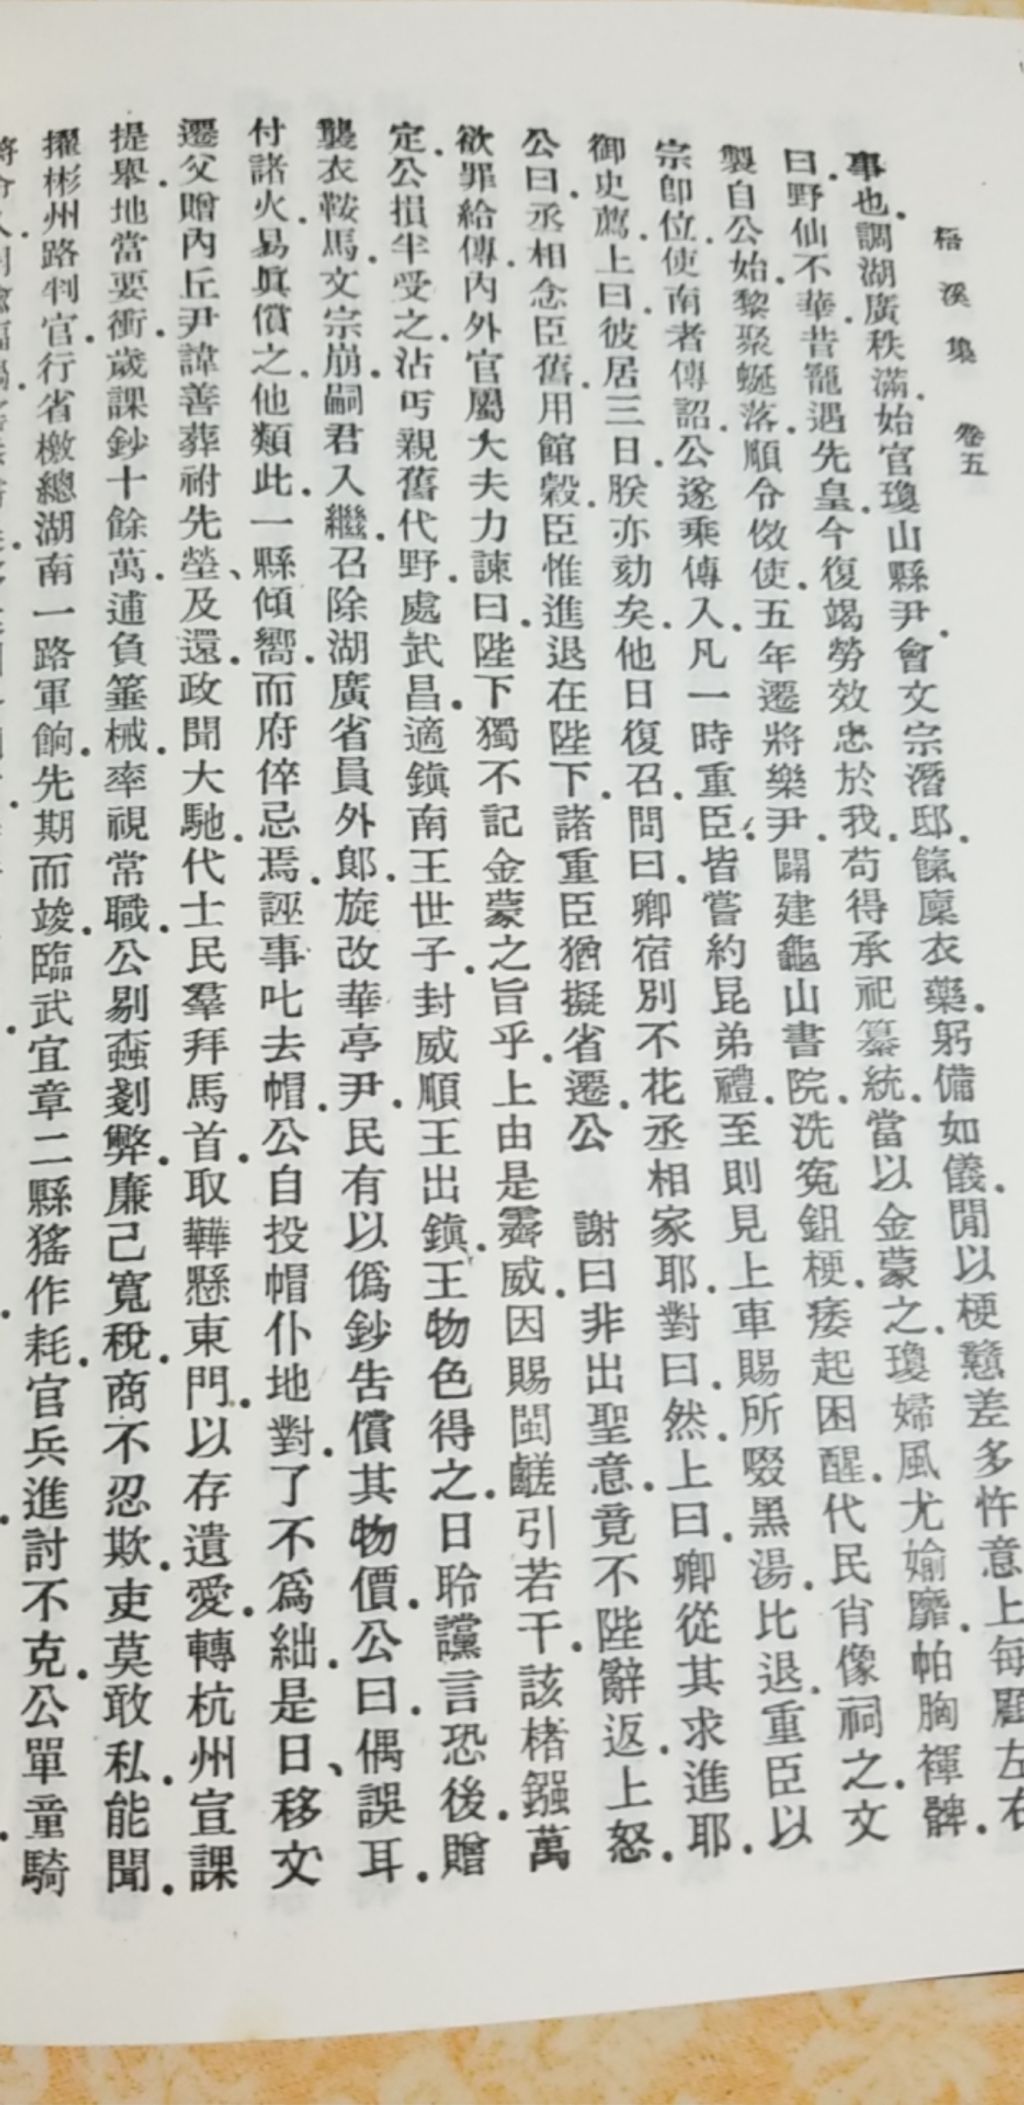 梧溪集 卷五
事也.調湖廣秩滿.始官瓊山縣尹.會文宗潛邸.餼廩衣藥.躬備如儀.閒以梗戇差多忤意上每顧左右
曰.野仙不華.昔寵遇先皇.今復竭勞效忠於我.苟得承祀纂統.當以金蒙之.瓊婦風尤媮靡.帕胸褌髀.
製自公始.黎聚蜒落.順令傚使.五年遷將樂尹.闢建龜山書院.洗冤鉏梗.痿起困醒.代民肖像祠之.文
宗卽位.使南者傳詔.公遂乘傳入.凡一時重臣.皆嘗約昆弟禮.至則見上車賜所啜黑湯.比退.重臣以
御史薦.上曰.彼居三日.朕亦劾矣.他日復召.問曰.卿宿別不花丞相家耶.對曰.然.上曰.卿從其求進耶.
公曰.丞相念臣舊.用館穀.臣惟進退在陛下.諸重臣猶擬省遷.公 謝曰非出聖意.竟不陛辭返.上怒.
欲罪給傳.內外官屬大夫力諫曰.陛下獨不記金蒙之旨乎.上由是霽威.因賜閩鹺引若干.該楮鏹萬
定.公損半受之.沾丐親舊.代野.處武昌.適鎭南王世子.封威順王出鎭.王物色得之.日聆讜言恐後.贈
襲衣鞍馬.文宗崩.嗣君入繼.召除湖廣省員外郞.旋改華亭尹.民有以僞鈔吿償其物價.公曰.偶誤耳.
付諸火.易眞償之.他類此.一縣傾嚮.而府倅忌焉.誣事叱去帽.公自投帽仆地對.了不爲絀.是日、移文
遷父贈內丘尹諱善葬祔先塋、及還.政聞大馳.代士民羣拜馬首.取鞾懸東門.以存遺愛.轉杭州宣課
提舉.地當要衝.歲課鈔十餘萬.逋負箠械.率視常職.公剔蠧剗弊.廉己寬稅.商不忍欺.吏莫敢私.能聞.
擢彬州路判官.行省檄總湖南一路軍餉.先期而竣.臨武宜章二縣猺作耗.官兵進討不克.公單童騎